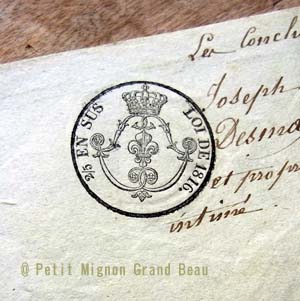 Les Conclu
Joseph
Desma
et propri
intimé.
2/5 EN SUS
LOI DE 1816.
@ Petit Mignon Grand Beau